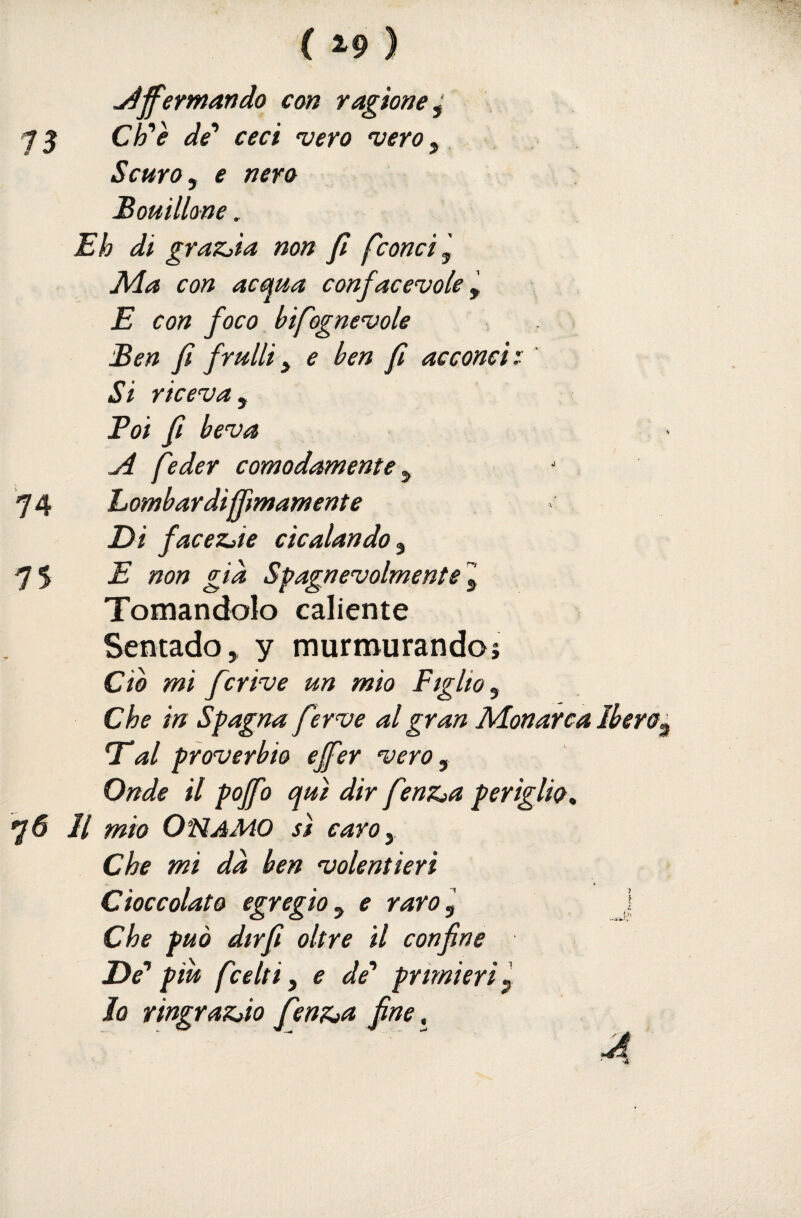 ( 29 )
Affermando con ragione,
73 Ch'è de' ceci vero vero,
Scuro, e nero
Bouillone.
Eh di grazia non ſi ſconci,
Ma con acqua confacevole,
E con foco biſognevole
Ben ſi frulli, e ben ſi acconci:
Si riceva,
Poi ſi beva
A ſeder comodamente,
74 Lombardiſſimamente
Di facezie cicalando,
75 E non già Spagnevolmente,
Tomandolo caliente
Sentado, y murmurando;
Ciò mi ſcrive un mio Figlio,
Che in Spagna ſerve al gran Monarca Ibero,
Tal proverbio eſſer vero,
Onde il poſſo quì dir ſenza periglio.
76 Il mio ONAMO sì caro,
Che mi dà ben volentieri
Cioccolato egregio, e raro,
Che può dirſi oltre il confine
De' più ſcelti, e de' primieri,
Io ringrazio ſenza fine.
A